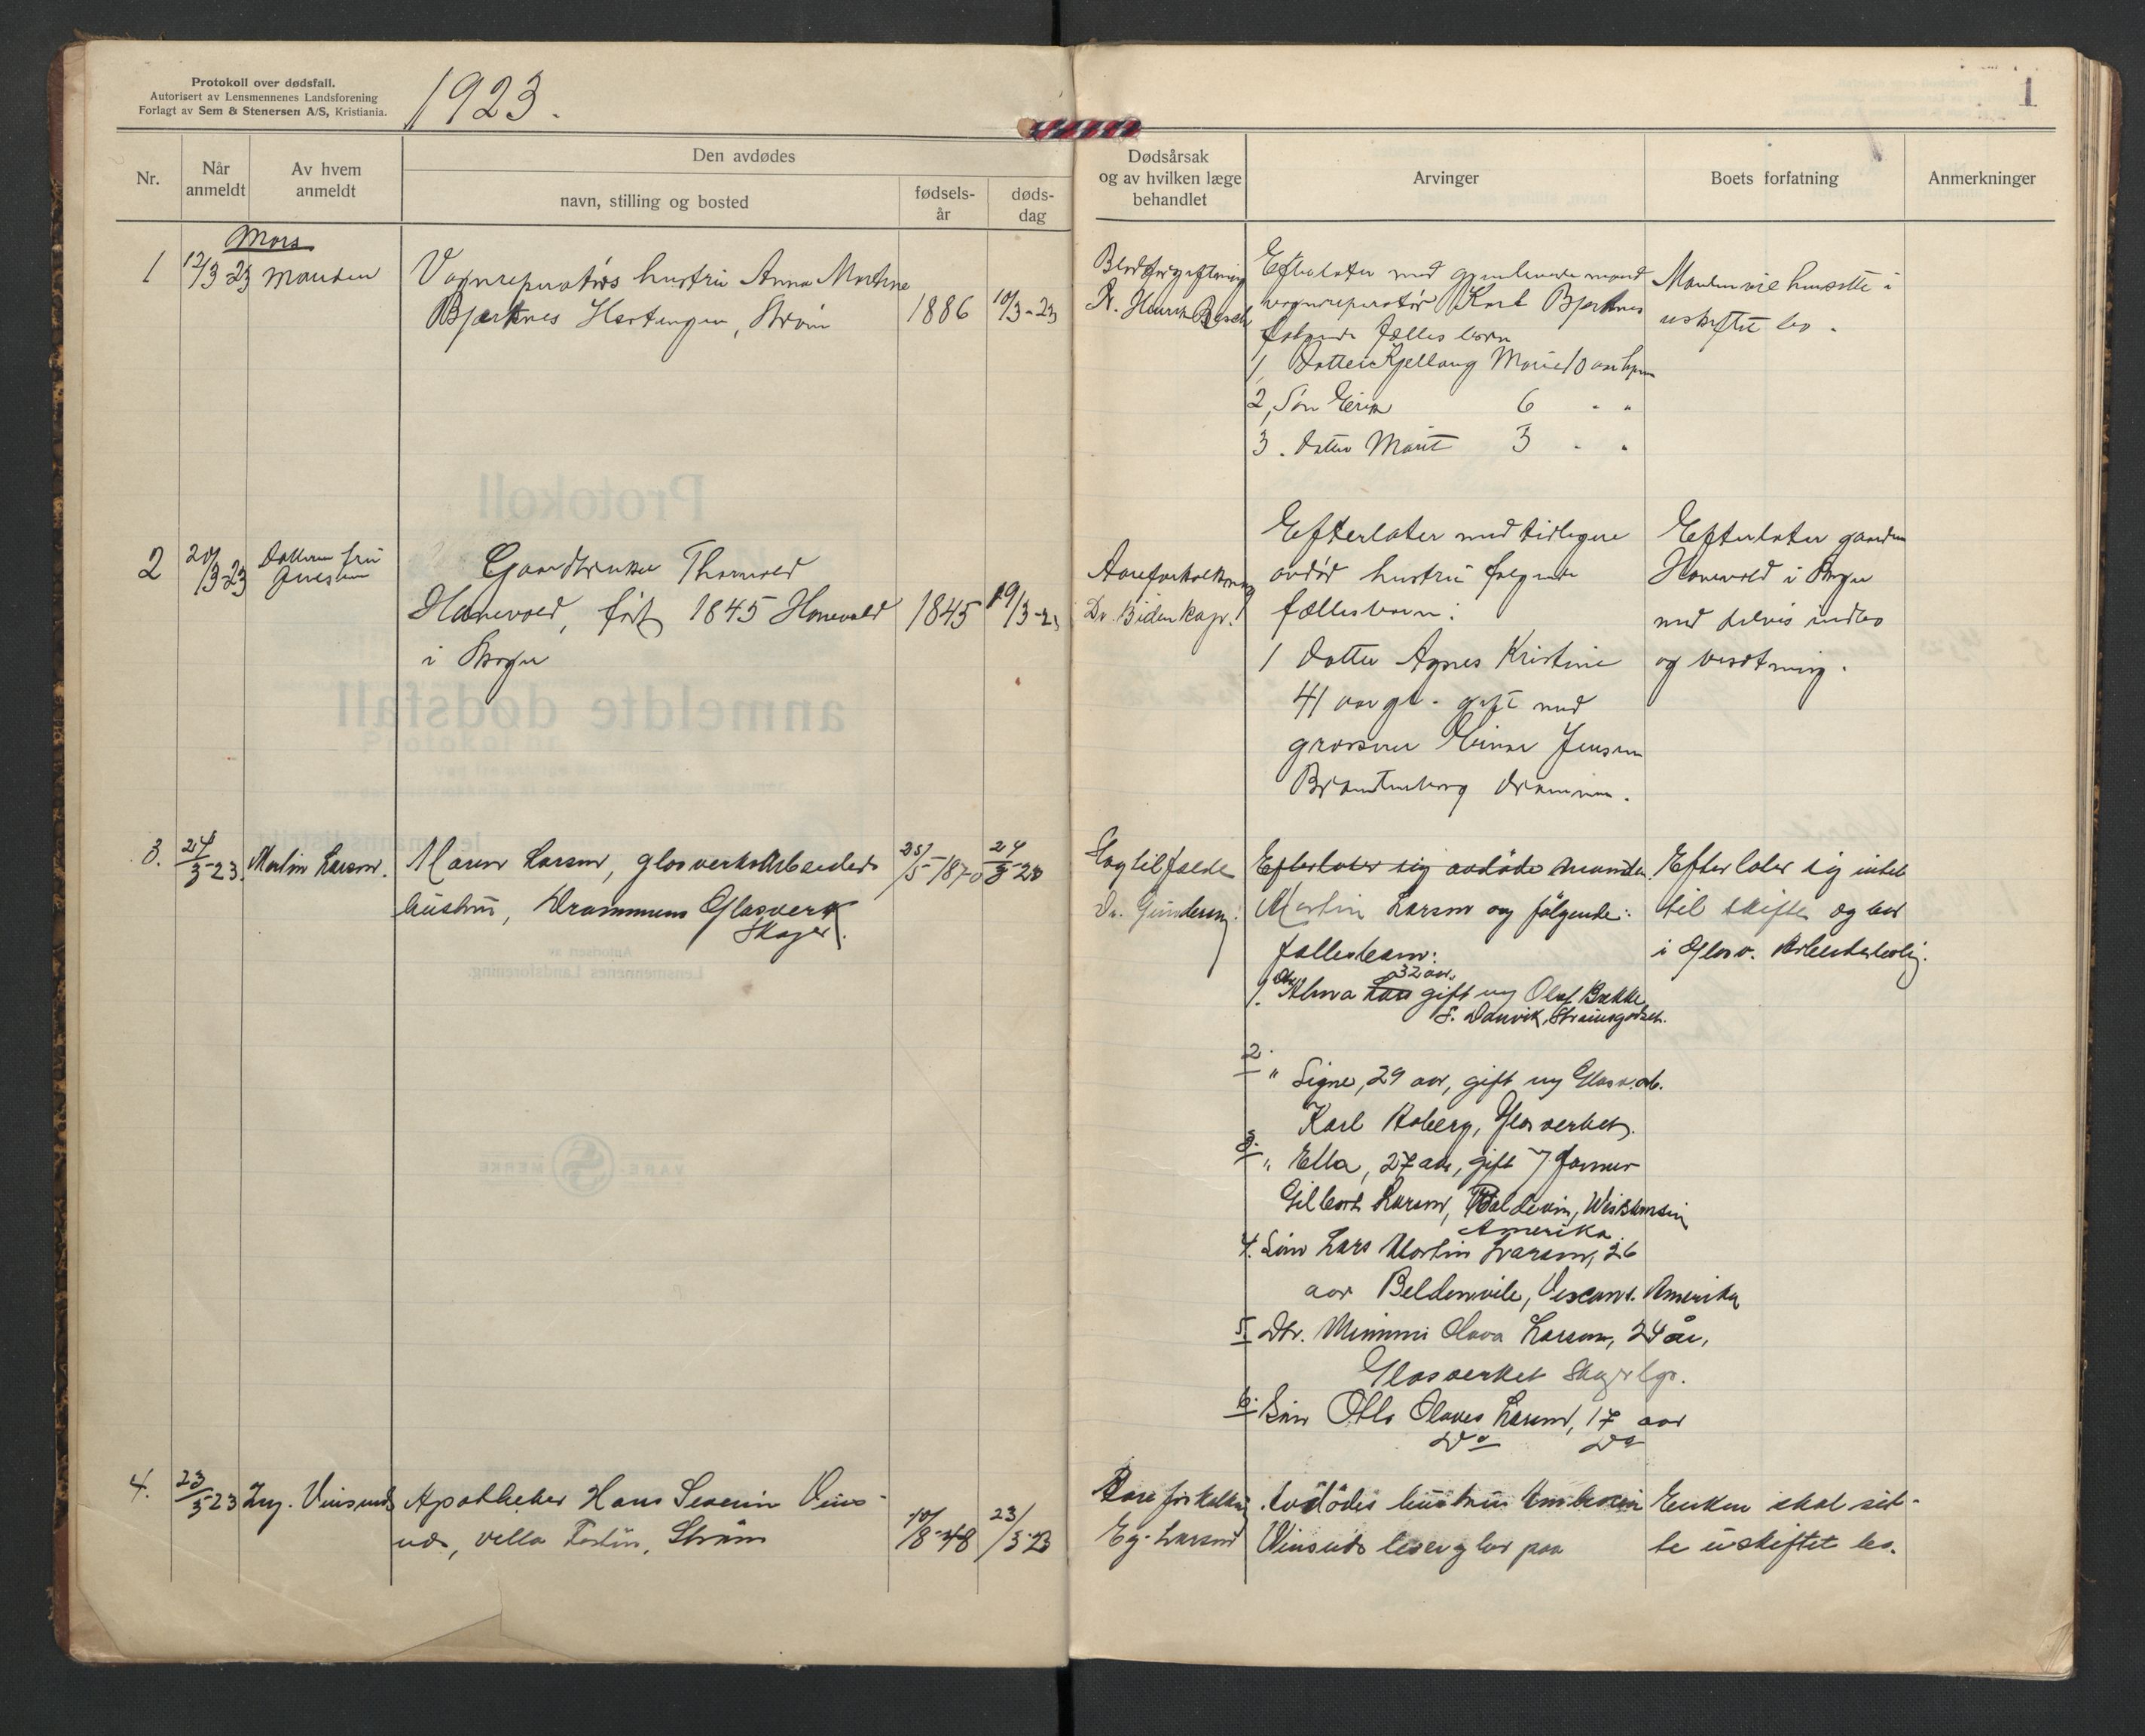 Protokoll over dødsfall.
Autorisert av Lensmennenes Landsforening
Forlagt av Sem & Stenersen A/S, Kristiania.
1923.
Nr.
Når anmeldt
Av hvem anmeldt
Den avdødes
navn, stilling og bosted
fødsels-år
døds-dag
Mars
1 12/3-23 Manden
Vognreperatørs hustru Anna Martine
Bjerknes Hertingen, Strøm 1886 10/3-23
2 20/3-23 Datteren fru Jensen
Gaardbruker Thorvald
Hanevold, født 1845 Hanevold 1845 19/3-23
i Skoger
3. 24/3-23. Martin Larsen.
Maren Larsen, glasverksarbeider 25/5-1870 24/3-23
hustru, Drammens Glasverk
Skoger.
4. 23/3-23 Ing. Vinsnes
Apotheker Hans Severin Vins-
nes, villa Strøm 10/8-48 23/3-23
1
Dødsårsak
og av hvilken læge
behandlet
Arvinger
Boets forfatning
Anmerkninger
Blodforgiftning
Dr. Henrik
Efterlater med gjenlevende mand
vognreperatør Karl Bjerknes
følgende fælles børn
1, Datter Kjellaug Marie 10 aar
2, Søn Erik 6 " "
3. datter Marit 3 " "
Manden vil hensitte i
uskiftet bo.
Aareforkalkning
Dr. Bidenkap.
Efterlater med tidligere
avdød hustru følgende
fællesbarn:
1 datter Agnes Kristine
41 aar gl. gift med
grosserer Einar Jensen
Drammen.
Efterlater gaarden
Hanevold i Skoger
med delvis indbo
og besætning.
Slagtilfælde
Dr. Gundersen.
Efterlater sig avdøde manden
Martin Larsen og følgende
fællesbarn:
1. Dtr. Alma Lars 32 aar, gift m/ Olaf Bække
S. Danvik, Strømsgodset.
2. " Signe, 29 aar, gift m/ Glasv.arb.
Karl Aaberg, Glasverket.
3. " Ella, 27 aar, gift m/ Farmer
Gilbert Larsen, Baldevin, Wiskonsin
Amerika
4. Søn Lars Martin Larsen, 26
aar Beldenvile, Viscons. Amerika
5 Dtr. Mimmi Olava Larsen, 24 år,
Glasverket Skoger
6. Søn Otto Olaves Larsen, 17 aar
Do Do
Efterlater sig intet
til skifte og bor
i Glasv. Arbeiderbolig.
Aareforkalkning
Eg. Larsen
Avdødes hustru
Vinsnes
Enken skal sit-
te i uskiftet bo.